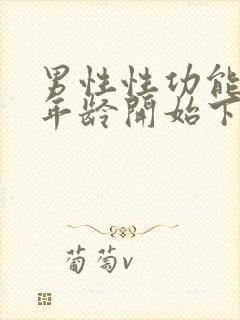 男性性功能
年龄開始下
葡萄v